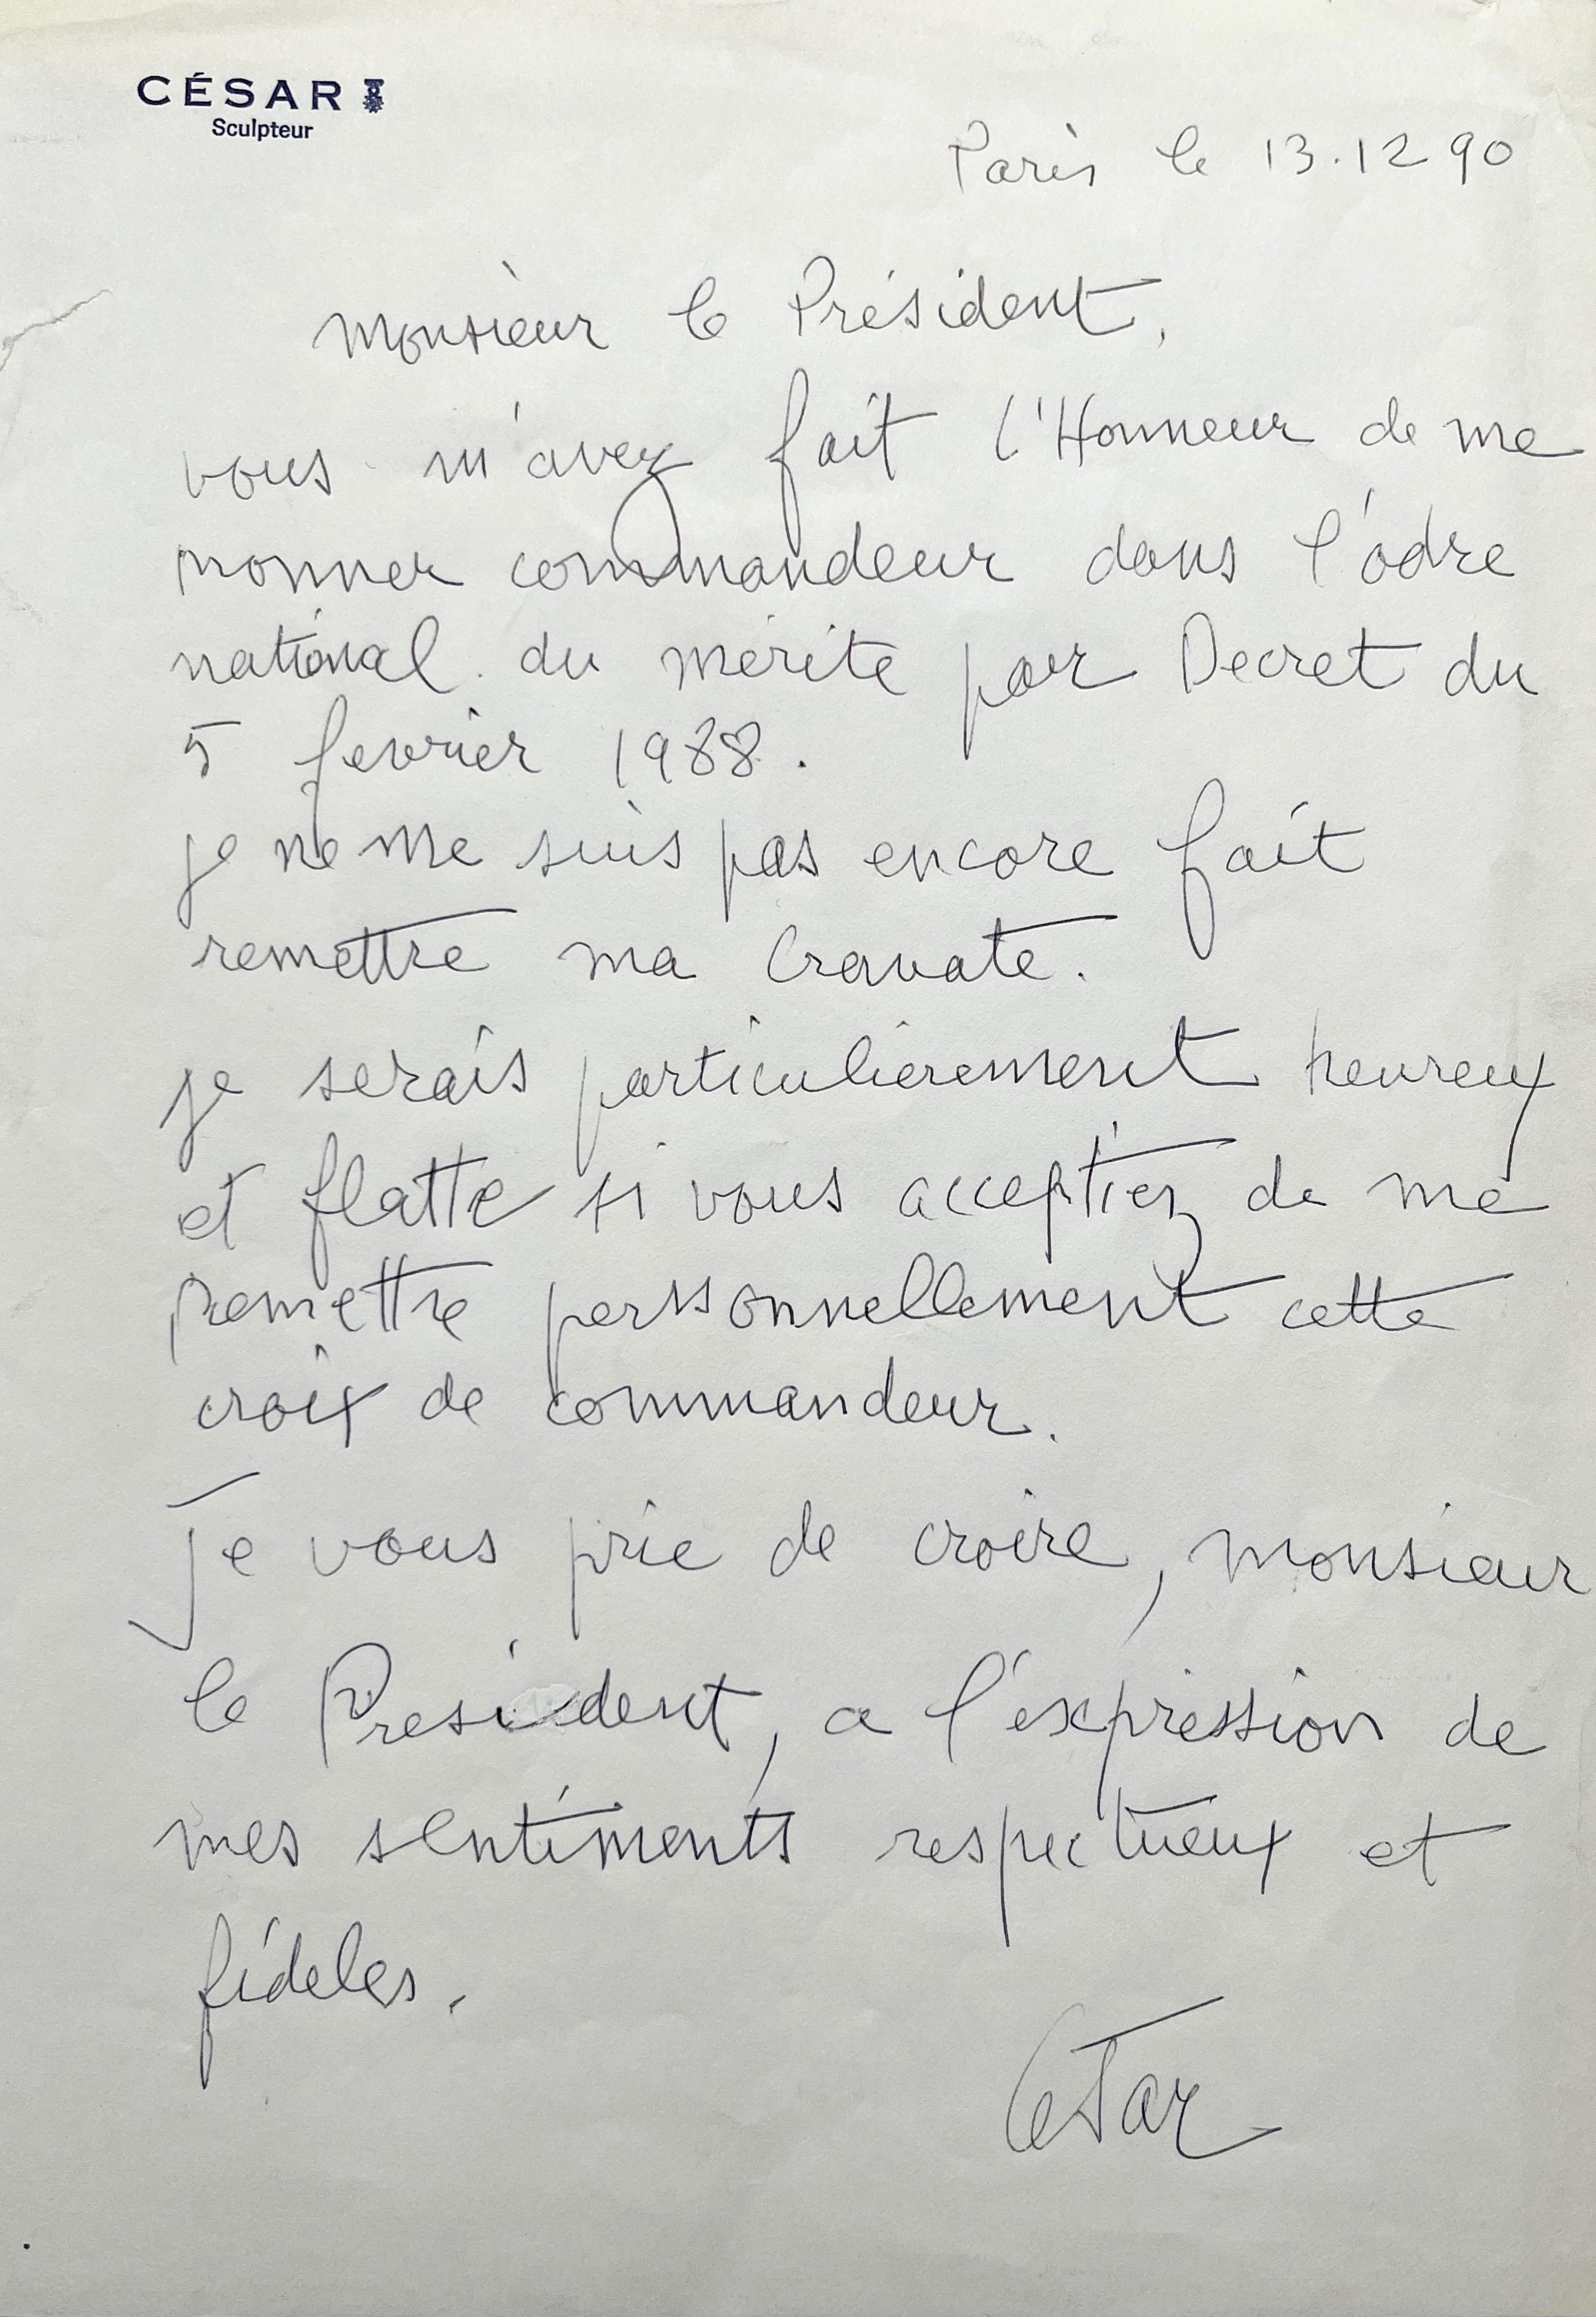 CÉSAR
Sculpteur
Paris le 13.12 90
Monsieur le Président,
vous m'avez fait l'Honneur de me
nonner commandeur dans l'odre
national du mérite par Decret du
5 fevrier 1988.
je ne me suis pas encore fait
remettre ma Cravate.
je serais particulierement heureux
et flatte si vous acceptiez de me
remettre personnellement cette
croix de commandeur.
Je vous prie de croire, monsieur
le Président, a l'éxpression de
mes sentiments respectueux et
fideles.
César